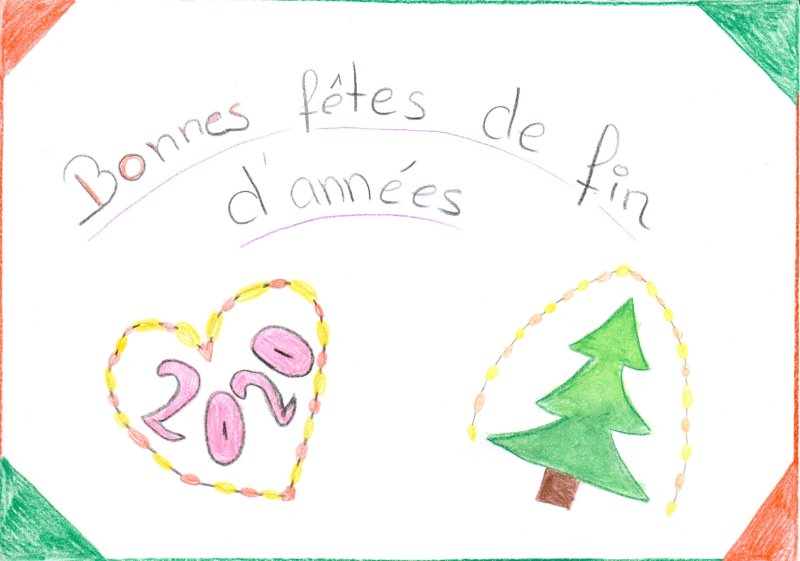 Bonnes fêtes de fin
d'années
2020